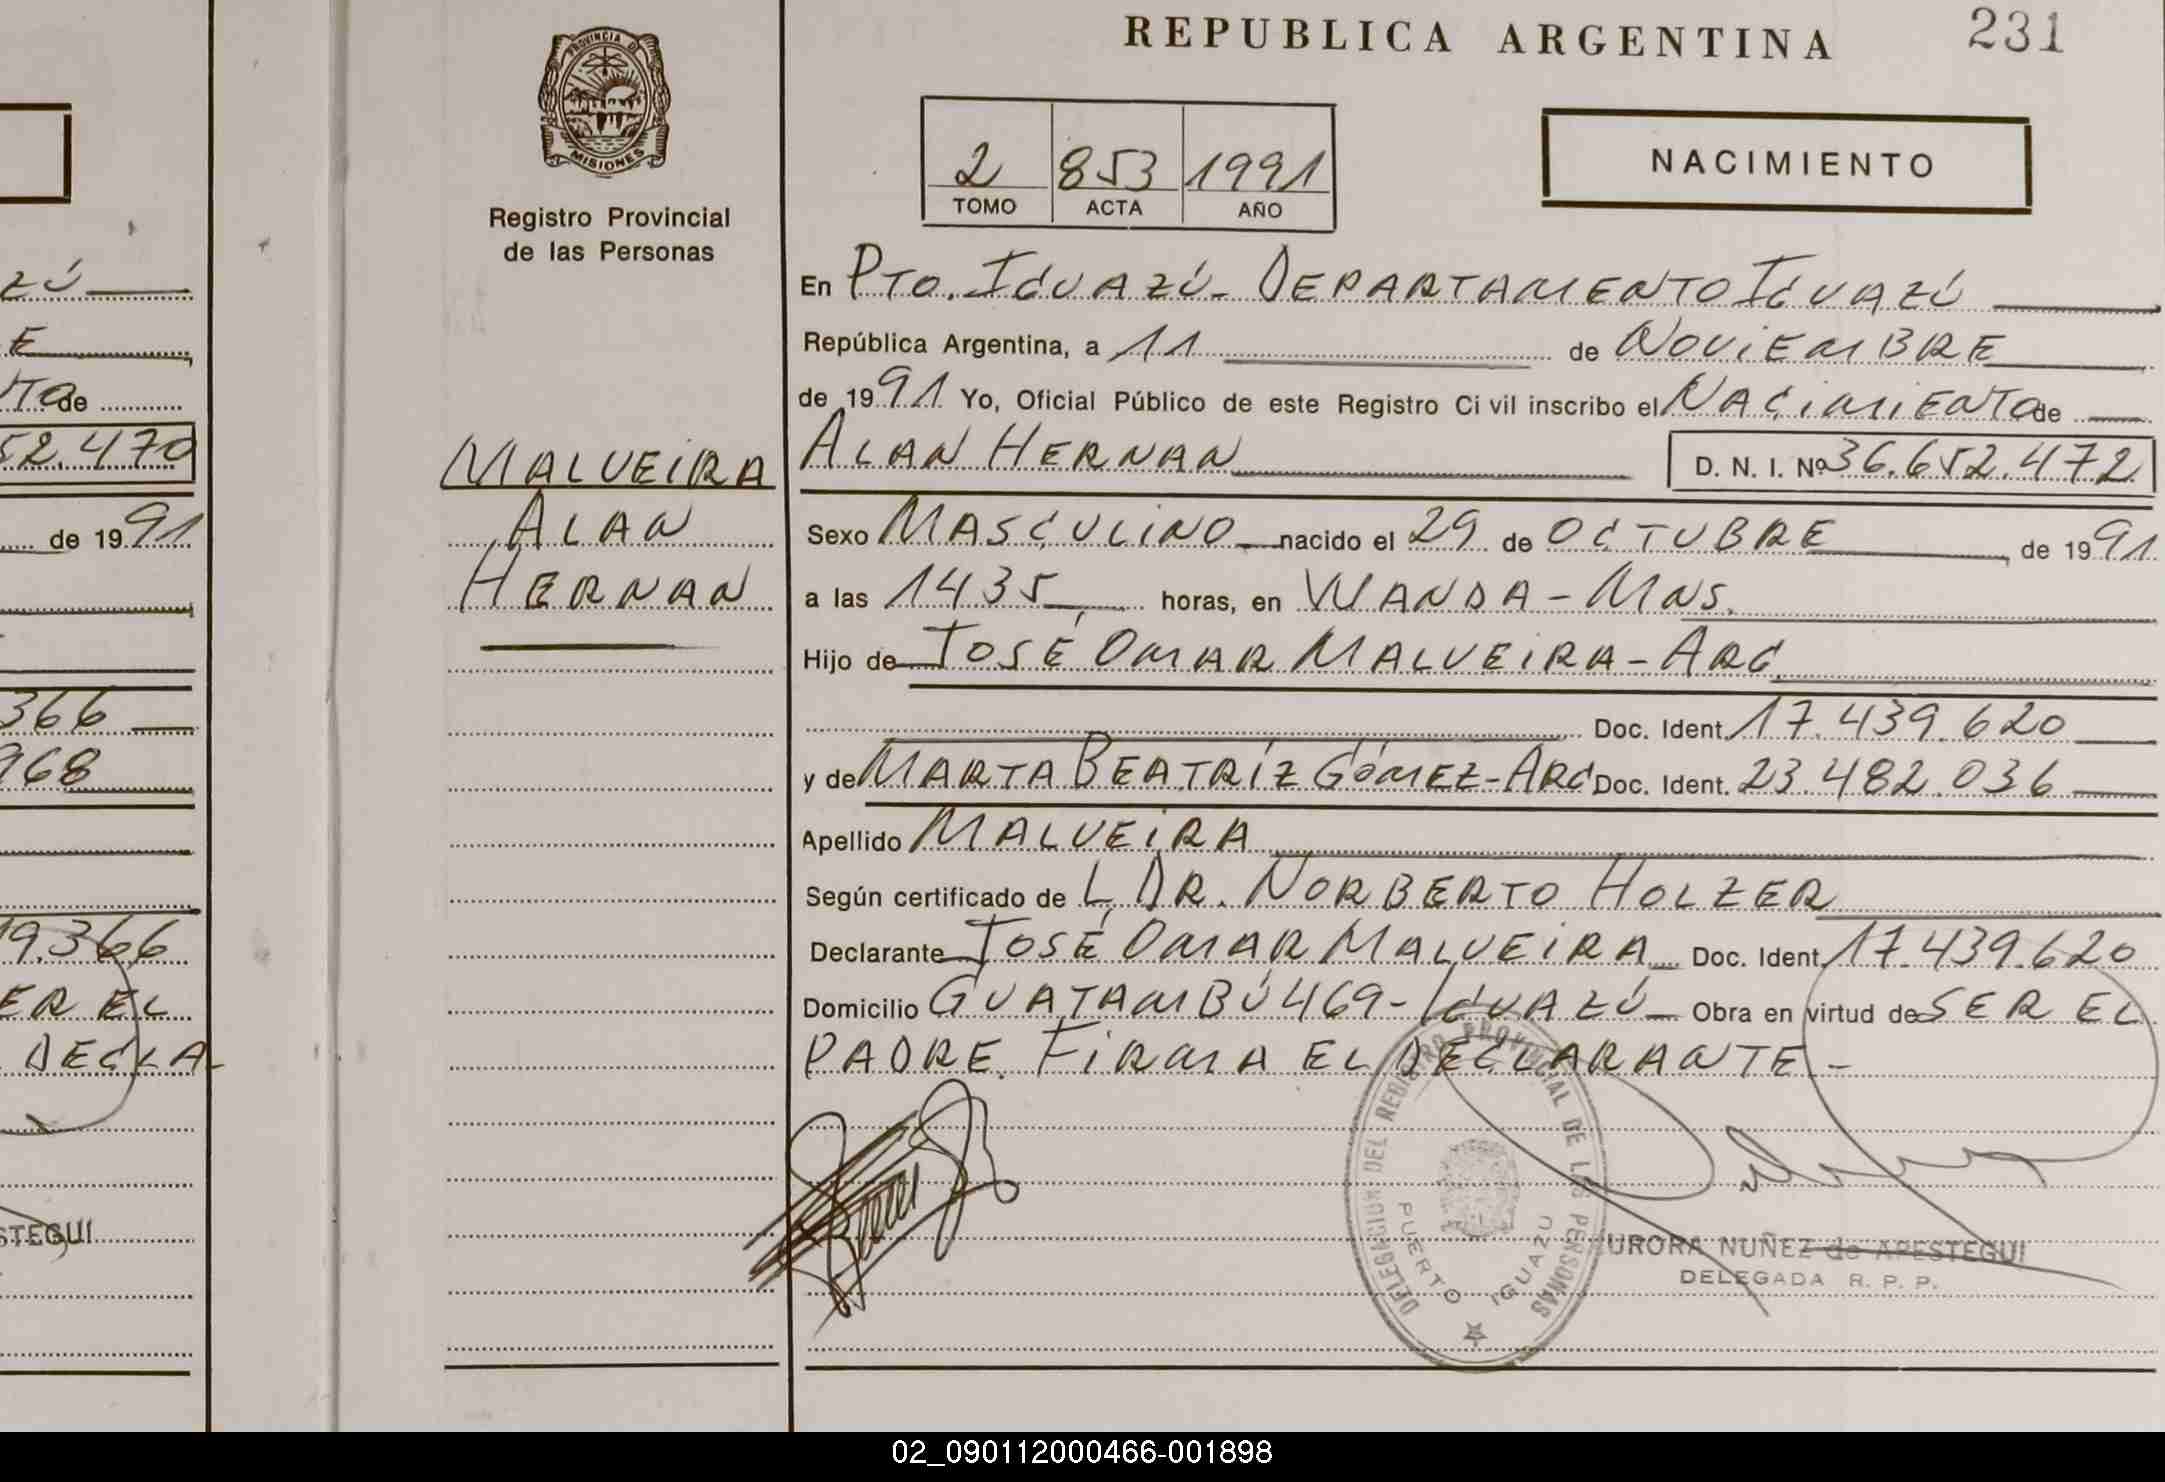 ZÚ
E
NTO de
52.470
de 1991
366
968
19.366
ER EL
DECLA-
STEGUI
PROVINCIA DE
MISIONES
Registro Provincial
de las Personas
MALVEIRA
ALAN
HERNAN
REPUBLICA ARGENTINA 231
2 853 1991
TOMO ACTA AÑO
NACIMIENTO
En PTO. IGUAZÚ - DEPARTAMENTO IGUAZÚ
República Argentina, a 11 de NOVIEMBRE
de 1991 Yo, Oficial Público de este Registro Civil inscribo el NACIMIENTO de
ALAN HERNAN D. N. I. Nº 36.652.472
Sexo MASCULINO nacido el 29 de OCTUBRE de 1991
a las 1435 horas, en WANDA - MNS.
Hijo de JOSÉ OMAR MALVEIRA - ARG
Doc. Ident. 17.439.620
y de MARTA BEATRÍZ GÓMEZ - ARG Doc. Ident. 23.482.036
Apellido MALVEIRA
Según certificado de L, DR. NORBERTO HOLZER
Declarante JOSÉ OMAR MALVEIRA Doc. Ident. 17.439.620
Domicilio GUATAMBÚ 469 - IGUAZÚ - Obra en virtud de SER EL
PADRE. FIRMA EL DECLARANTE -
DELEGACION DEL REGISTRO PROVINCIAL DE LAS PERSONAS
PUERTO IGUAZU
AURORA NUÑEZ de APESTEGUI
DELEGADA R. P. P.
02_090112000466-001898